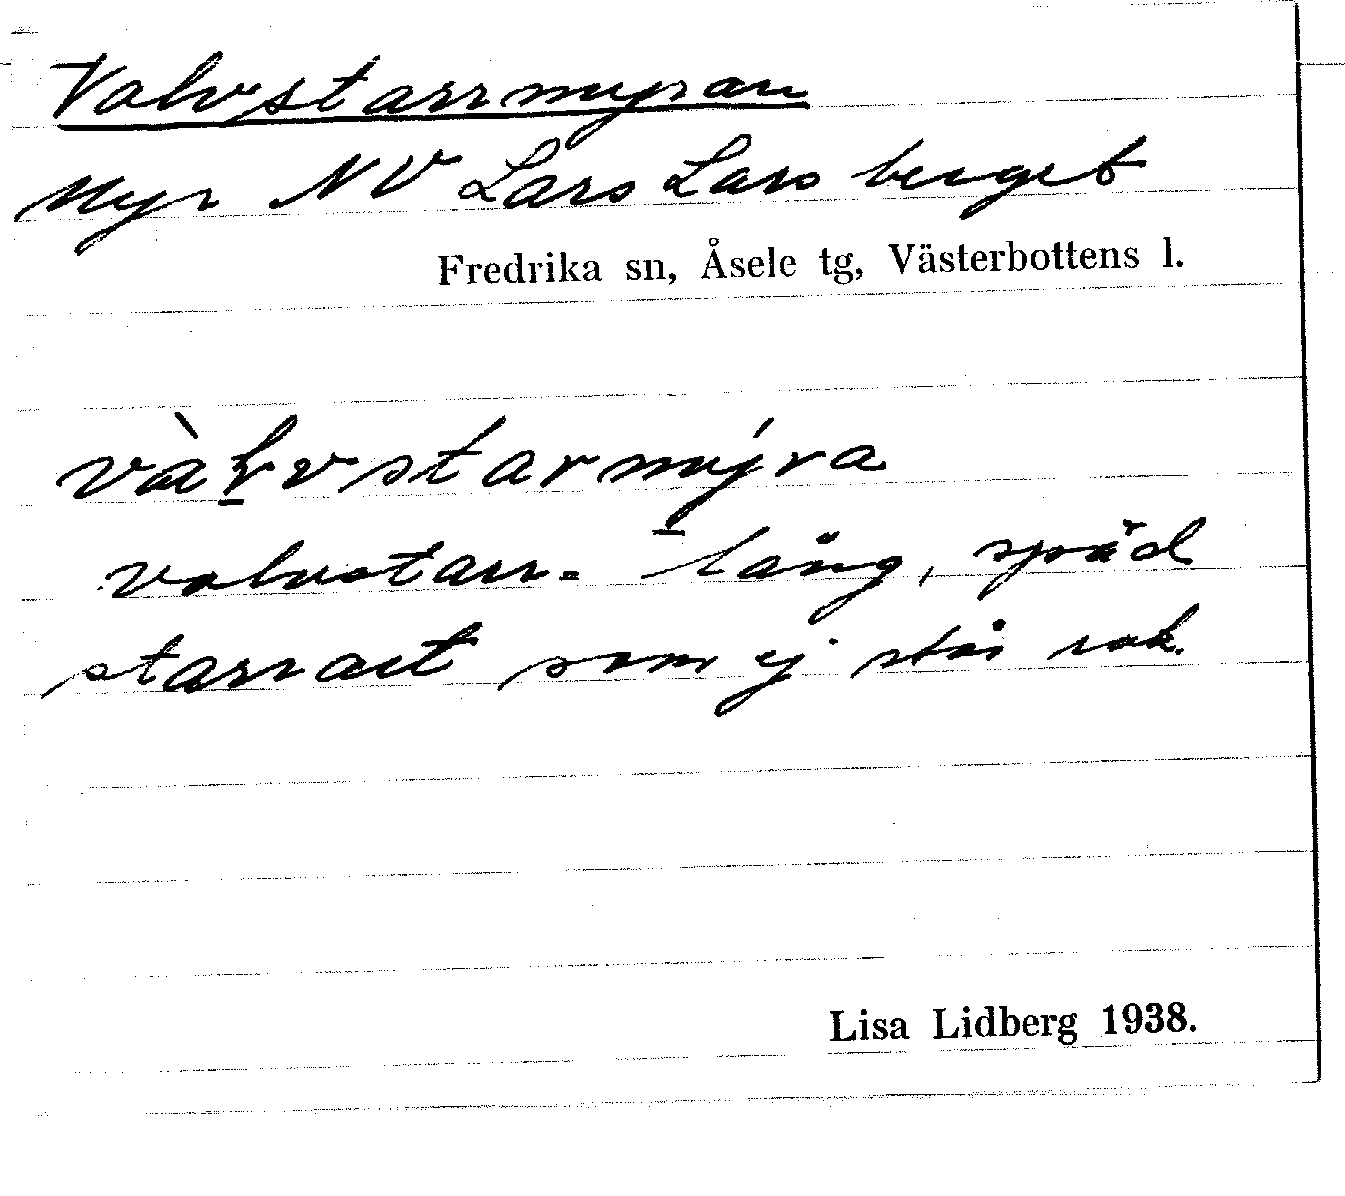 Valvstarrmyran
Myr NV Lars Larsberget
Fredrika sn, Åsele tg, Västerbottens l.
vàḻvstarmýra
valvstarr = lång, späd
starrart som ej står rak.
Lisa Lidberg 1938.